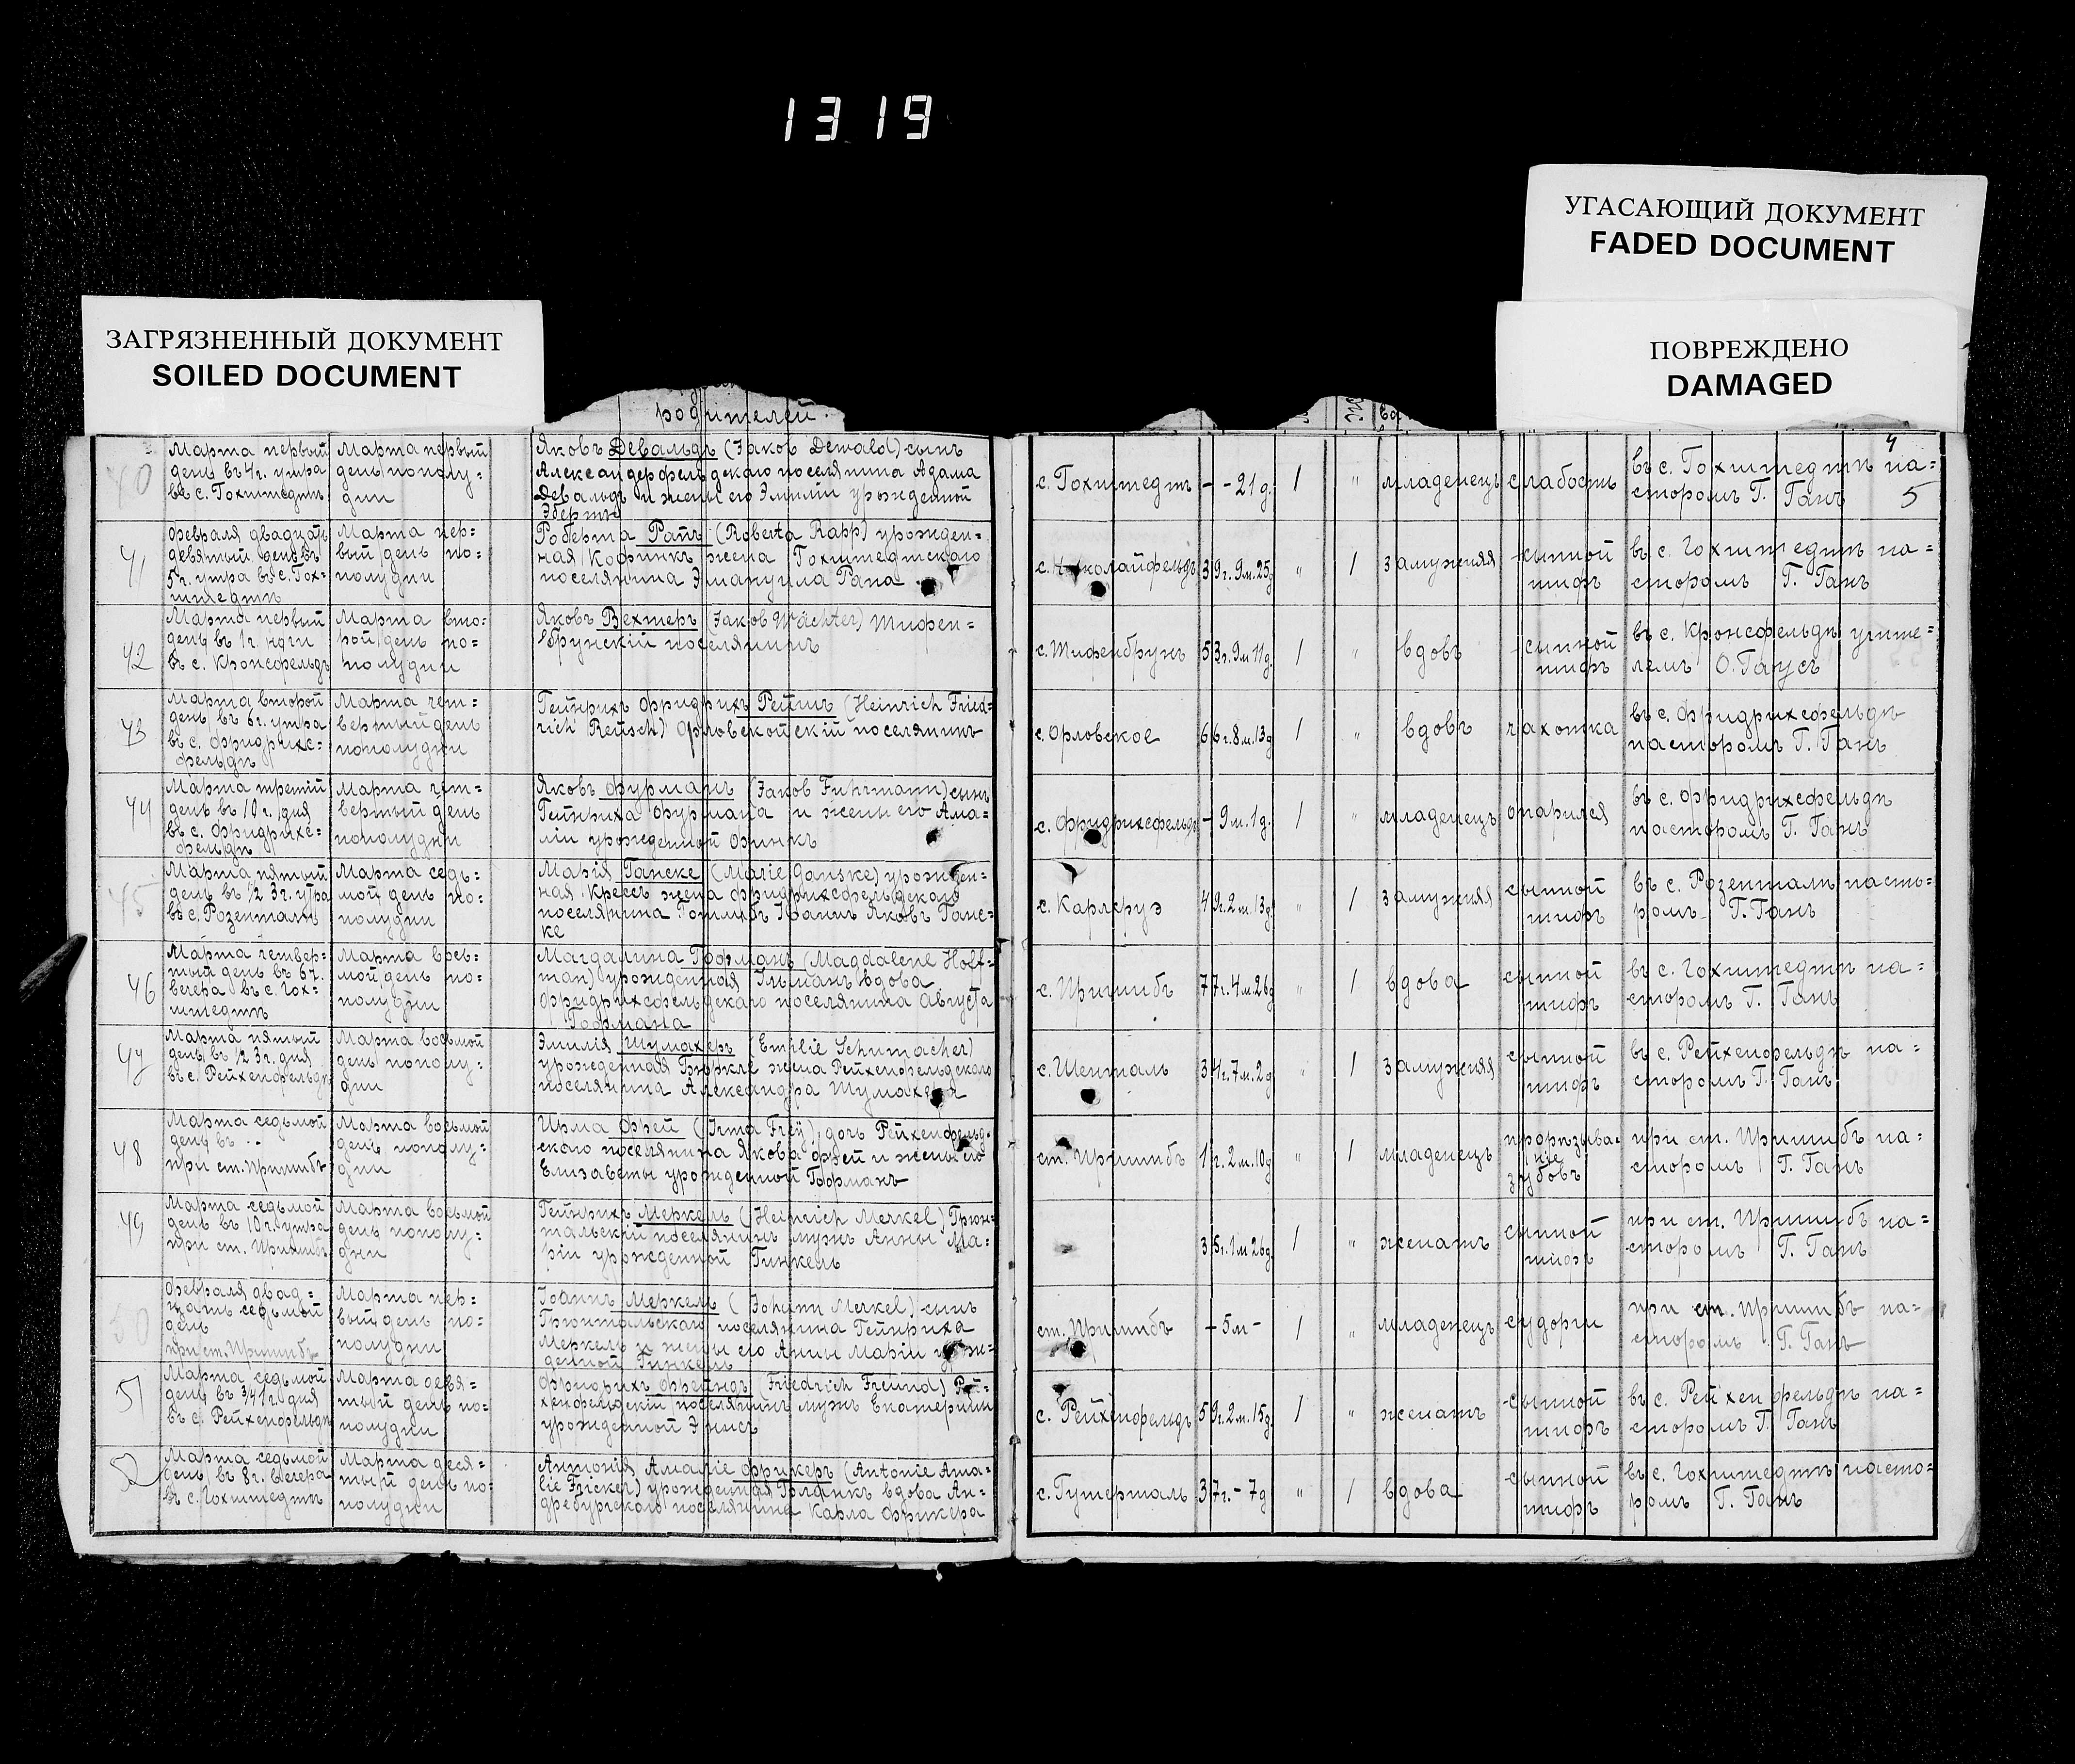 1319
УГАСАЮЩИЙ ДОКУМЕНТ
FADED DOCUMENT
ЗАГРЯЗНЕННЫЙ ДОКУМЕНТ
SOILED DOCUMENT
ПОВРЕЖДЕНО
DAMAGED
родителей.
4
5
40
Марта первый
день въ 4 г. утра
въ с. Гохштедтѣ
Марта первый
день пополу=
дни
Яковъ Девальдъ (Jakob Dewald) сынъ
Александерфельдскаго поселянина Адама
Девальдъ и жены его Эмиліи урожденной
Эбертъ
с. Гохштедтъ
- - 21 д.
1
"
младенецъ
слабость
въ с. Гохштедтѣ па=
сторомъ Г. Ганъ
41
Февраля двадцать
девятый день въ
5 г. утра въ с. Гох=
штедтѣ
Марта пер=
вый день по=
полудни
Роберта Рапъ (Roberta Rapp) урожден=
ная Кофинкъ жена Гохштедтскаго
поселянина Эмануила Рапа
с. Николайфельдъ
39 г. 9 м. 25 д
"
1
замужняя
сыпной
тифъ
въ с. Гохштедтѣ па=
сторомъ Г. Ганъ
42
Марта первый
день въ 1 г. ночи
въ с. Кронсфельдѣ
Марта вто=
рой день по=
полудни
Яковъ Вехтеръ (Jakob Wächter) Тифен=
брунскій поселянинъ
с. Тифенбрунъ
53 г. 9 м 11 д.
1
"
вдовъ
сыпной
тифъ
въ с. Кронсфельдѣ учите=
лемъ О. Гаусъ
43
Марта второй
день въ 6 г. утра
въ с. Фридрихс=
фельдѣ
Марта чет=
вертый день
пополудни
Гейнрихъ Фридрихъ Рейшъ (Heinrich Fried=
rich Reusch) Орловскойскій поселянинъ
с. Орловское
66 г. 8 м. 13 д
1
"
вдовъ
чахотка
въ с. Фридрихсфельдѣ
пасторомъ Г. Ганъ
44
Марта третій
день въ 10 г. дня
въ с. Фридрихс=
фельдѣ
Марта чет=
вертый день
пополудни
Яковъ Фурманъ (Jakob Fuhrmann) сынъ
Гейнриха Фурмана и жены его Ама=
ліи урожденной Финкъ
с. Фридрихсфельдъ
- 9 м. 1 д.
1
"
младенецъ
опарился
въ с. Фридрихсфельдѣ
пасторомъ Г. Ганъ
45
Марта пятый
день въ 1/2 3 г. утра
въ с. Розенталѣ
Марта седь=
мой день по=
полудни
Марія Ганске (Marie Ganske) урожден=
ная Крессъ жена Фридрихсфельдскаго
поселянина Готлибъ Іоаннъ Яковъ Ганс=
ке
с. Карлсруэ
49 г. 2 м. 13 д
"
1
замужняя
сыпной
тифъ
въ с. Розенталѣ пасто=
ромъ Г. Ганъ
46
Марта четвер=
тый день въ 6 г.
вечера въ с. Гох=
штедтѣ
Марта вось=
мой день по=
полудни
Магдалина Гофманъ (Magdalene Hoff=
man) урожденная Гильманъ вдова
Фридрихсфельдскаго поселянина Августа
Гофмана
с. Пришибъ
77 г. 4 м. 26 д
"
1
вдова
сыпной
тифъ
въ с. Гохштедтѣ па=
сторомъ Г. Ганъ
47
Марта пятый
день въ 1/2 3 г. дня
въ с. Рейхенфельдѣ
Марта восьмой
день пополу=
дни
Эмилія Шумахеръ (Emilie Schumacher)
урожденная Бюркле жена Рейхенфельдскаго
поселянина Александра Шумахера
с. Шенталь
34 г. 7 м. 2 д
"
1
замужняя
сыпной
тифъ
въ с. Рейхенфельдѣ па=
сторомъ Г. Ганъ
48
Марта седьмой
день въ ..
при ст. Пришибъ
Марта восьмой
день пополу=
дни
Ирма Фрей (Irma Frey), дочь Рейхенфельд=
скаго поселянина Якова Фрей и жены его
Елизаветы урожденной Гофманъ
ст. Пришибъ
1 г. 2 м. 10 д
"
1
младенецъ
прорѣзыва=
ніе
зубовъ
при ст. Пришибъ па=
сторомъ Г. Ганъ
49
Марта седьмой
день въ 10 г. утра
при ст. Пришибъ
Марта восьмой
день пополу=
дни
Гейнрихъ Меркель (Heinrich Merkel) Грюн=
тальскій поселянинъ мужъ Анны Ма=
ріи урожденной Гинкель
35 г. 1 м 26 д.
1
"
женатъ
сыпной
тифъ
при ст. Пришибъ па=
сторомъ Г. Ганъ
50
Февраля двад=
цать седьмой
день
при ст. Пришибъ
Марта пер=
вый день по=
полудни
Іоаннъ Меркель (Johann Merkel) сынъ
Грюнтальскаго поселянина Гейнриха
Меркель и жены его Анны Маріи урож=
денной Гинкель
ст. Пришибъ
- 5 м -
1
"
младенецъ
судорги
при ст. Пришибъ па=
сторомъ Г. Ганъ
51
Марта седьмой
день въ 3/4 1 г. дня
въ с. Рейхенфельдѣ
Марта девя=
тый день по=
полудни
Фридрихъ Фрейндъ (Friedrich Freund) Рей=
хенфельдскій поселянинъ мужъ Екатерины
урожденной
с. Рейхенфельдъ
59 г. 2 м. 15 д.
1
"
женатъ
сыпной
тифъ
въ с. Рейхенфельдѣ па=
сторомъ Г. Ганъ
52
Марта седьмой
день въ 8 г. вечера
въ с. Гохштедтѣ
Марта деся=
тый день по=
полудни
Антонія Амалie Фрикеръ (Antonie Ama=
lie Fricker) урожденная вдова Ан=
дребургскаго поселянина Карла Фрикера
с. Гутерталь
37 г. - 7 д
"
1
вдова
сыпной
тифъ
въ с. Гохштедтѣ пасто=
ромъ Г. Ганъ